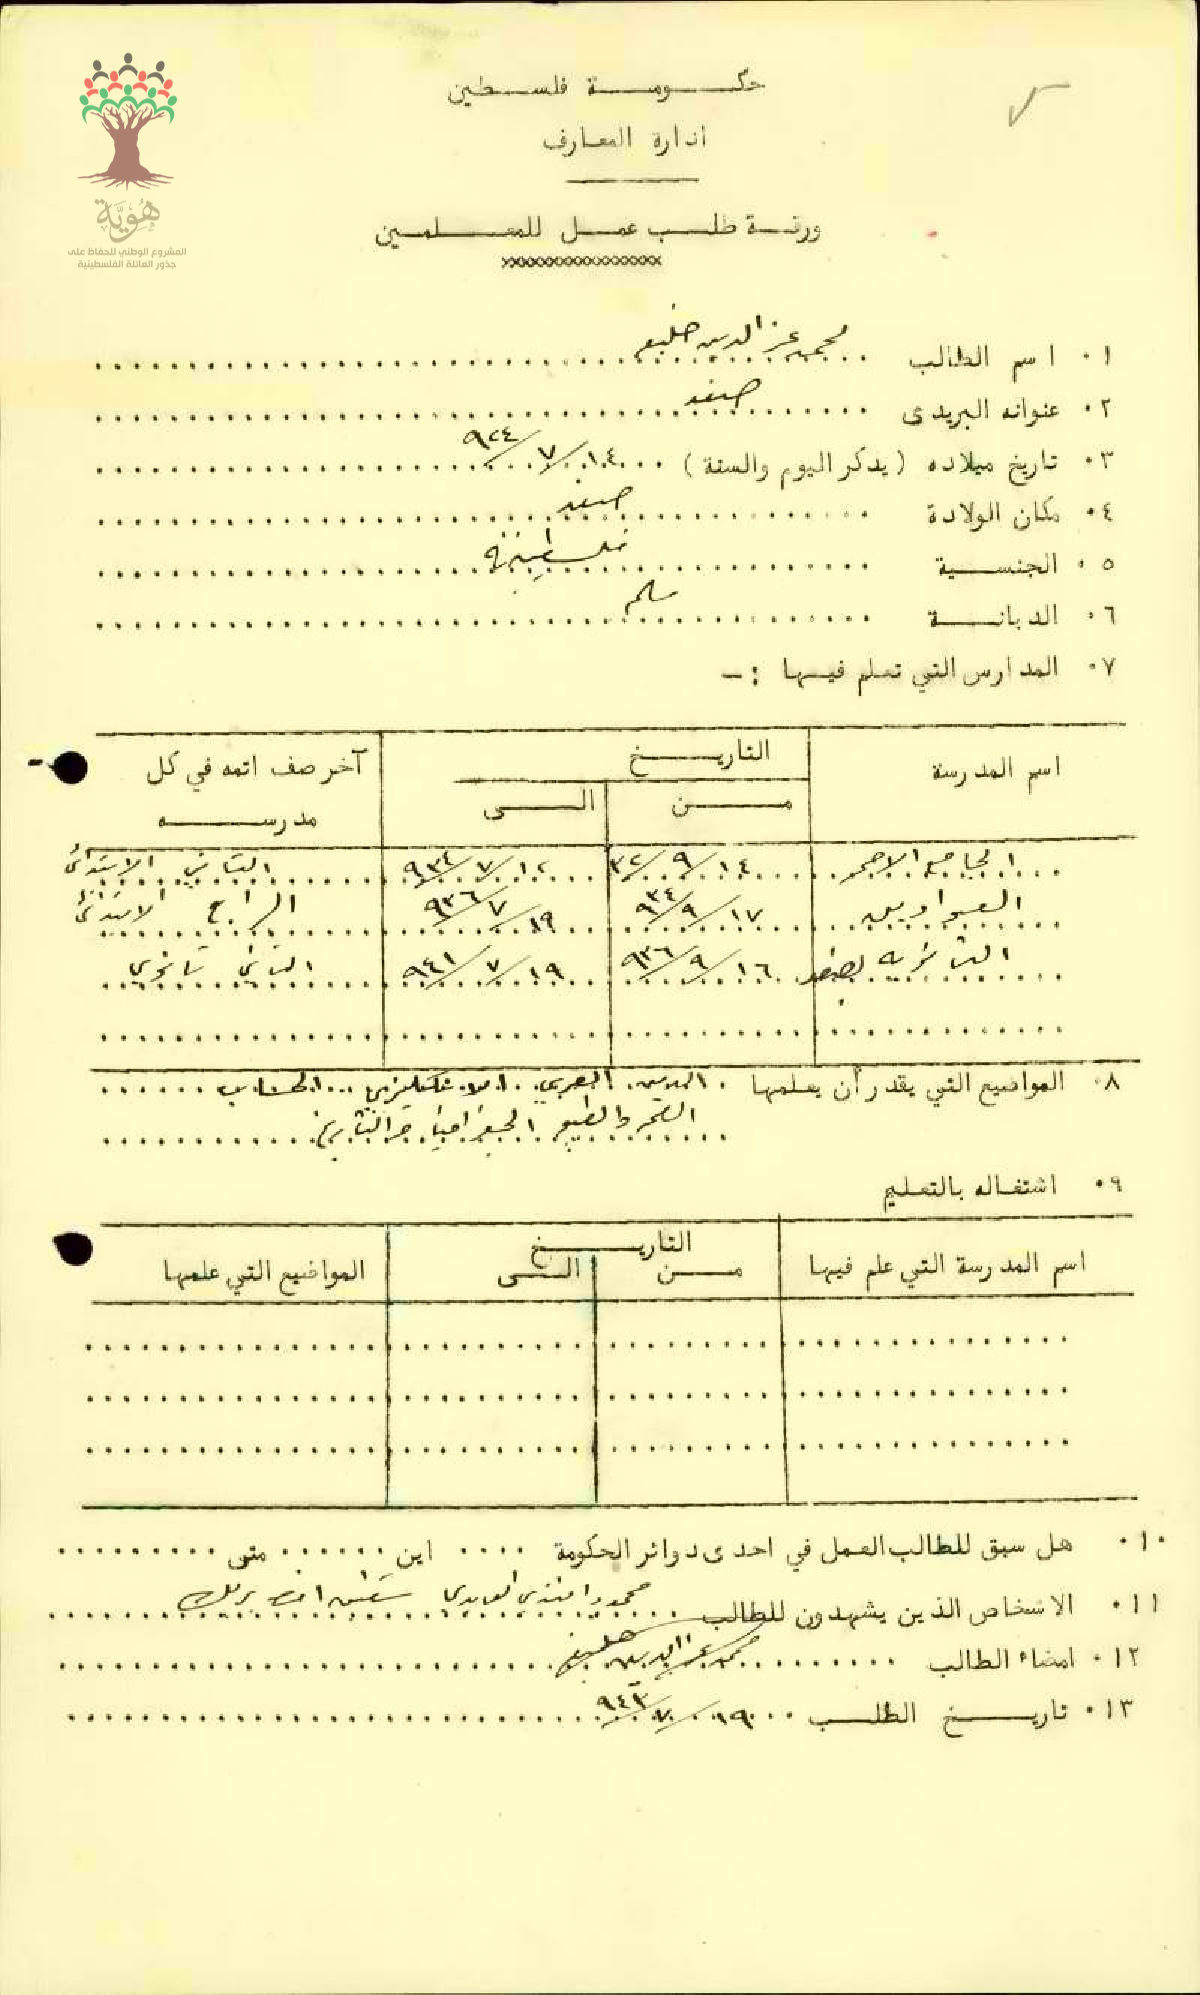 هُوِيَّة
المشروع الوطني للحفاظ على
جذور العائلة الفلسطينية
حكومة فلسطين
ادارة المعارف
ورقة طلب عمل للمعلمين
١٠ اسم الطالب محمد عز الدين خليفه
٢٠ عنوانه البريدى صفد
٣٠ تاريخ ميلاده (يذكر اليوم والسنة) ١٤/٧/٩٢٤
٤٠ مكان الولادة صفد
٥٠ الجنسية فلسطينية
٦٠ الديانة مسلم
٧٠ المدارس التي تعلم فيها :-
اسم المدرسة التاريخ آخر صف اتمه في كل
من الى مدرسه
الجامع الاحمر ١٤/٩/٣٢ ١٢/٧/٩٣٤ الثاني الابتدائي
١٧/٩/٩٣٤ ١٩/٧/٩٣٦ الرابع الابتدائي
الثانوية بصفد ١٦/٩/٩٣٦ ١٩/٧/٩٤١ الثاني ثانوي
٨٠ المواضيع التي يقدر أن يعلمها الدين العربي الانكليزي الحساب
الجغرافيا والتاريخ
٩٠ اشتغاله بالتعليم
اسم المدرسة التي علم فيها التاريخ المواضيع التي علمها
من الى
١٠٠ هل سبق للطالب العمل في احدى دوائر الحكومة اين متى
١١٠ الاشخاص الذين يشهدون للطالب محمود افندي العابدي
١٢٠ امضاء الطالب محمد عز الدين خليفه
١٣٠ تاريخ الطلب ١٩/٧/٩٤٣